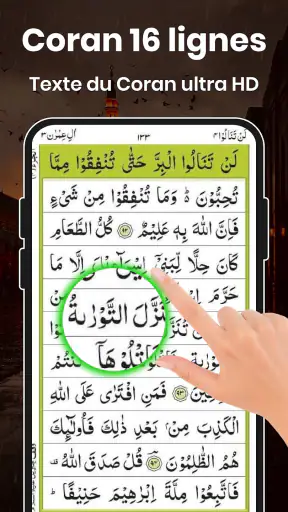 Coran 16 lignes
Texte du Coran ultra HD
لَنْ تَنَالُوْا ٤ ١٢٣ اٰلِ عِمْرٰن ٣
لَنْ تَنَالُوا الْبِرَّ حَتّٰى تُنْفِقُوْا مِمَّا
تُحِبُّوْنَ ؕ وَمَا تُنْفِقُوْا مِنْ شَىْءٍ
فَاِنَّ اللّٰهَ بِهٖ عَلِيْمٌ ﴿٩٢﴾ كُلُّ الطَّعَامِ
كَانَ حِلًّا لِّبَنِىْۤ اِسْرَآءِيْلَ اِلَّا مَا
حَرَّمَ
تُنَزَّلَ التَّوْرٰىةُ
فَاتْلُوْهَاۤ
كُنْتُمْ
صٰدِقِيْنَ ﴿٩٣﴾ فَمَنِ افْتَرٰى عَلَى اللّٰهِ
الْكَذِبَ مِنْۢ بَعْدِ ذٰلِكَ فَاُولٰٓئِكَ
هُمُ الظّٰلِمُوْنَ ﴿٩٤﴾ قُلْ صَدَقَ اللّٰهُ
فَاتَّبِعُوْا مِلَّةَ اِبْرٰهِيْمَ حَنِيْفًا ؕ